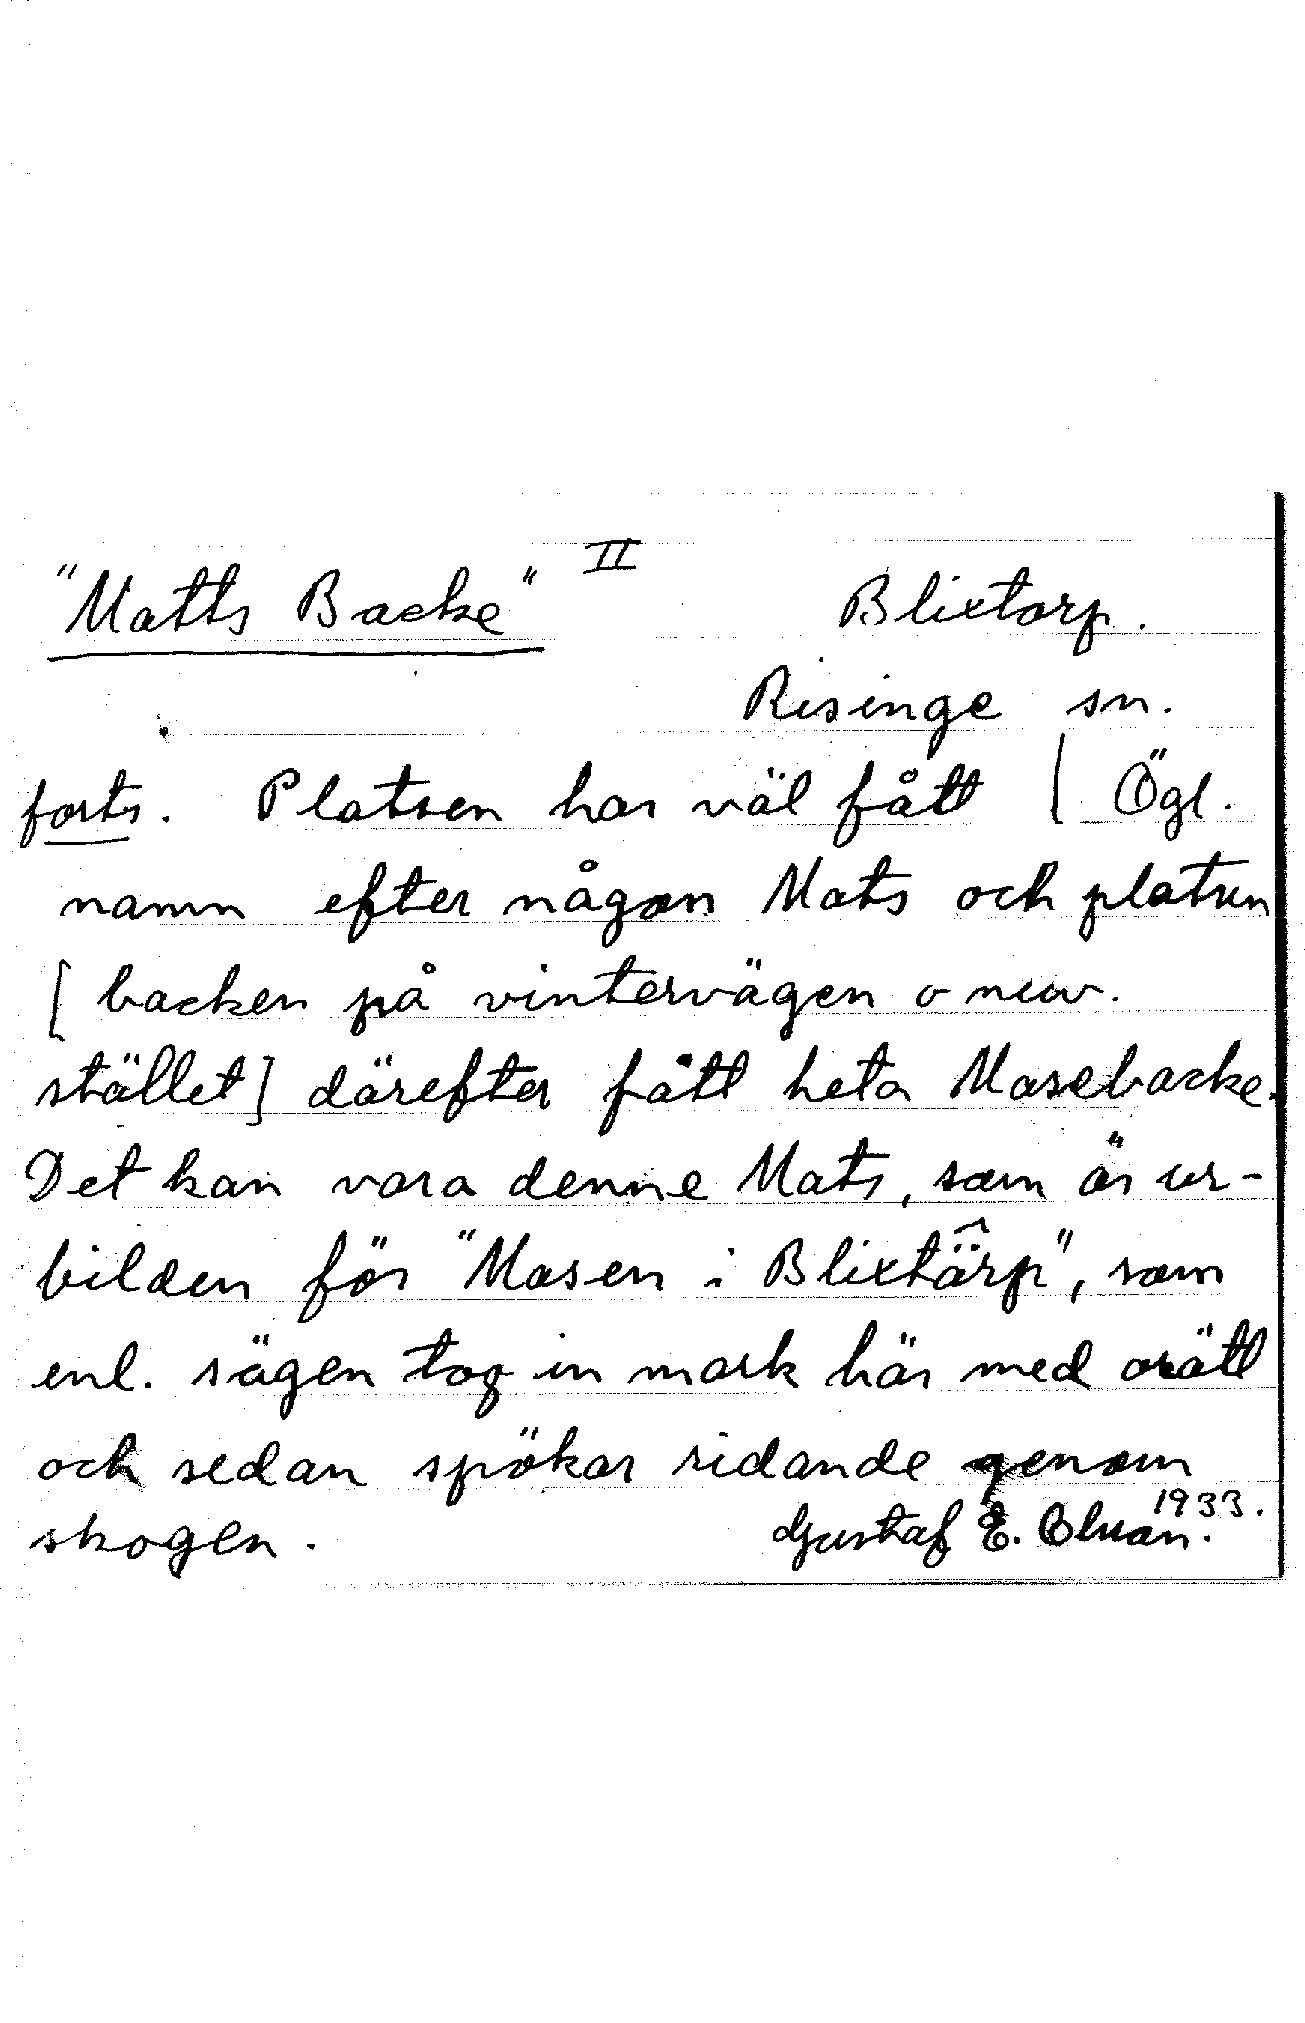 "Matts Backe" II Blixtorp.
Risinge sn.
forts. Platsen har väl fått | Ögl.
namn efter någon Mats och platsen
[backen på vintervägen o nuv.
stället] därefter fått heta Masebacke.
Det kan vara denne Mats, som är ur-
bilden för "Masen i Blixtä̂rp", som
enl. sägen tog in mark här med orätt
och sedan spökar ridande genom
skogen. Gustaf E. Olsson. 1933.